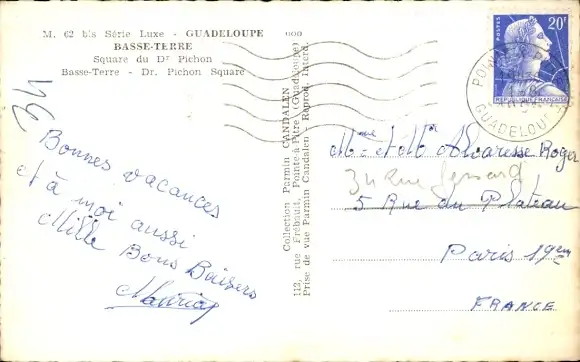 M. 62 bis Série Luxe - GUADELOUPE
BASSE-TERRE
Square du Dr Pichon
Basse-Terre - Dr. Pichon Square
34
Bonnes vacances
et à moi aussi
Mille Bons Baisers
Collection Parmin CANDALEN
112, rue Frébault, Pointe-à-Pitre (Guadeloupe)
Prise de vue Parmin Candalen - Reprod. Interd.
POSTES
20F
REPUBLIQUE FRANÇAISE
GUADELOUPE
Mme et Mr Alvaresse Roger
34 Rue
5 Rue du Plateau
Paris 19em
FRANCE